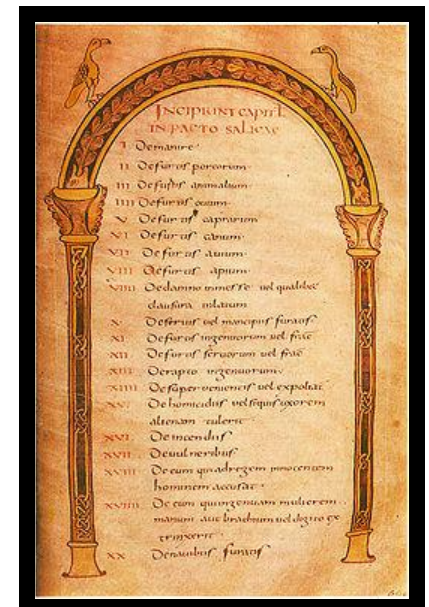 INCIPIUNT CAPITL
IN PACTO SALICAE
I De manire
II De furtis porcorum
III De furtis animalium
IIII De furtis ovium
V De furtis caprarum
VI De furtis canum
VII De furtis avium
VIII De furtis apium
VIIII De damno in messe vel qualibet
clausura inlatum
X De servis vel mancipiis furatis
XI De furtis ingenuorum vel frac
XII De furtis servorum vel frac
XIII De rapto ingenuorum
XIIII De super venientis vel expoliat
XV De homicidiis vel si quis uxorem
alienam tulerit
XVI De incendiis
XVII De vulneribus
XVIII De eum qui ad regem innocentem
hominem accusat
XVIIII De eum qui ingenuam mulierem
manum aut brachium vel digito ex
trinxerit
XX De navibus furatis